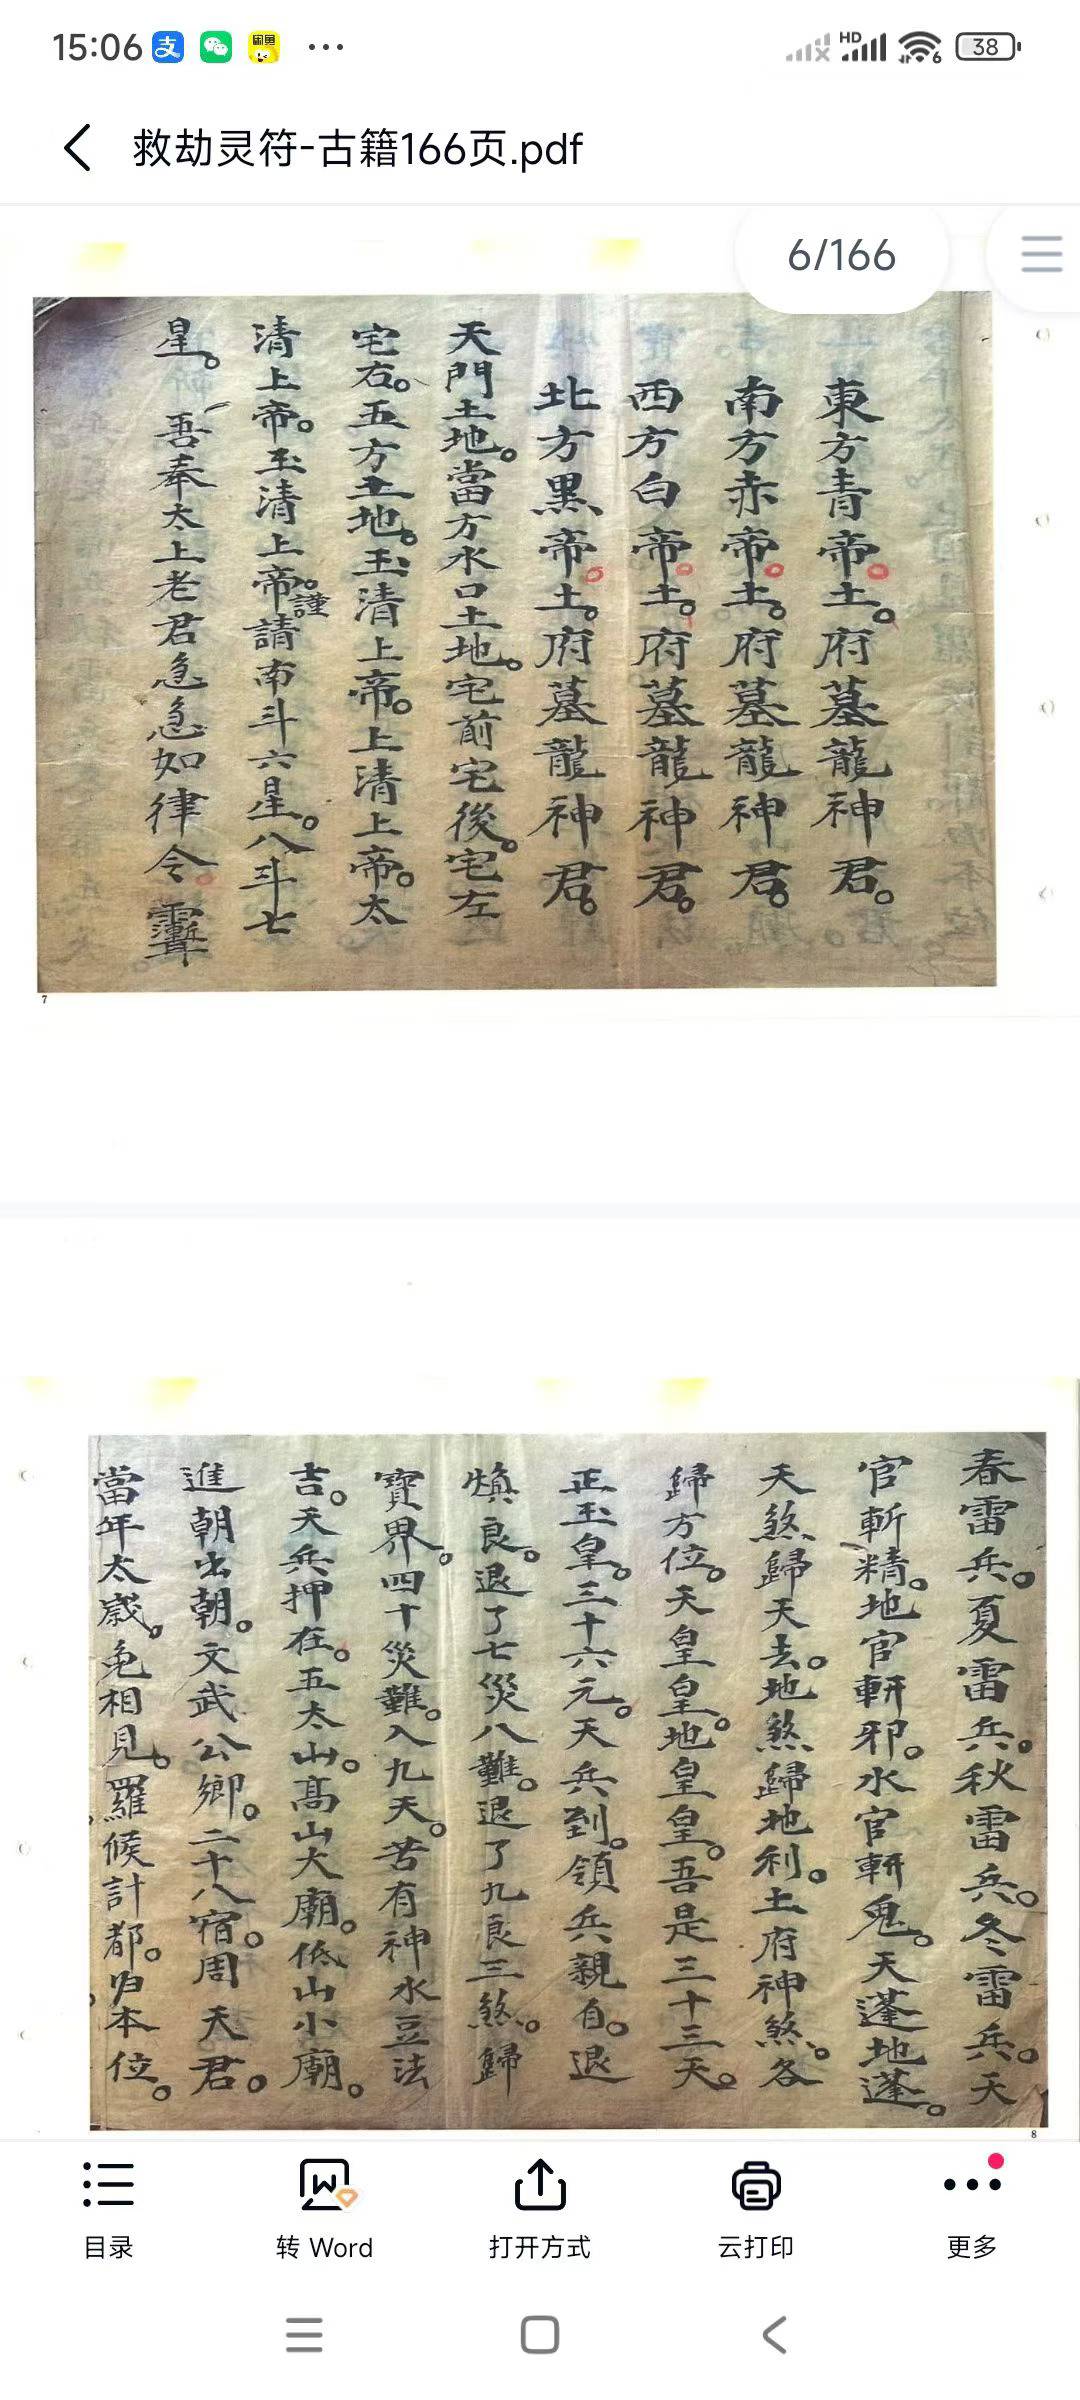 15:06 支 闲鱼 ... HD 6 38
救劫灵符-古籍166页.pdf
6/166
東方青帝。土。府墓龍神君。
南方赤帝。土。府墓龍神君。
西方白帝。土。府墓龍神君。
北方黑帝。土。府墓龍神君。
天門土地。當方水口土地。宅前宅後。宅左
宅右。五方土地。玉清上帝。上清上帝。太
清上帝。玉清上帝。謹請南斗六星。八斗七
星。吾奉太上老君急急如律令。
7
春雷兵。夏雷兵。秋雷兵。冬雷兵。天
官斬精。地官斬邪。水官斬鬼。天蓬地蓬。
天煞歸天去。地煞歸地利。土府神煞。各
歸方位。天皇皇。地皇皇。吾是三十三天。
正玉皇。三十六元。天兵到。領兵親自。退
良。退了七災八難。退了九良三煞。歸
寶界。四十災難。入九天。苦有神水豆法
吉。天兵押在。五太山。高山大廟。低山小廟。
進朝出朝。文武公卿。二十八宿。周天君。
當年太歲。免相見。羅候計都。归本位。
8
目录
转 Word
打开方式
云打印
更多